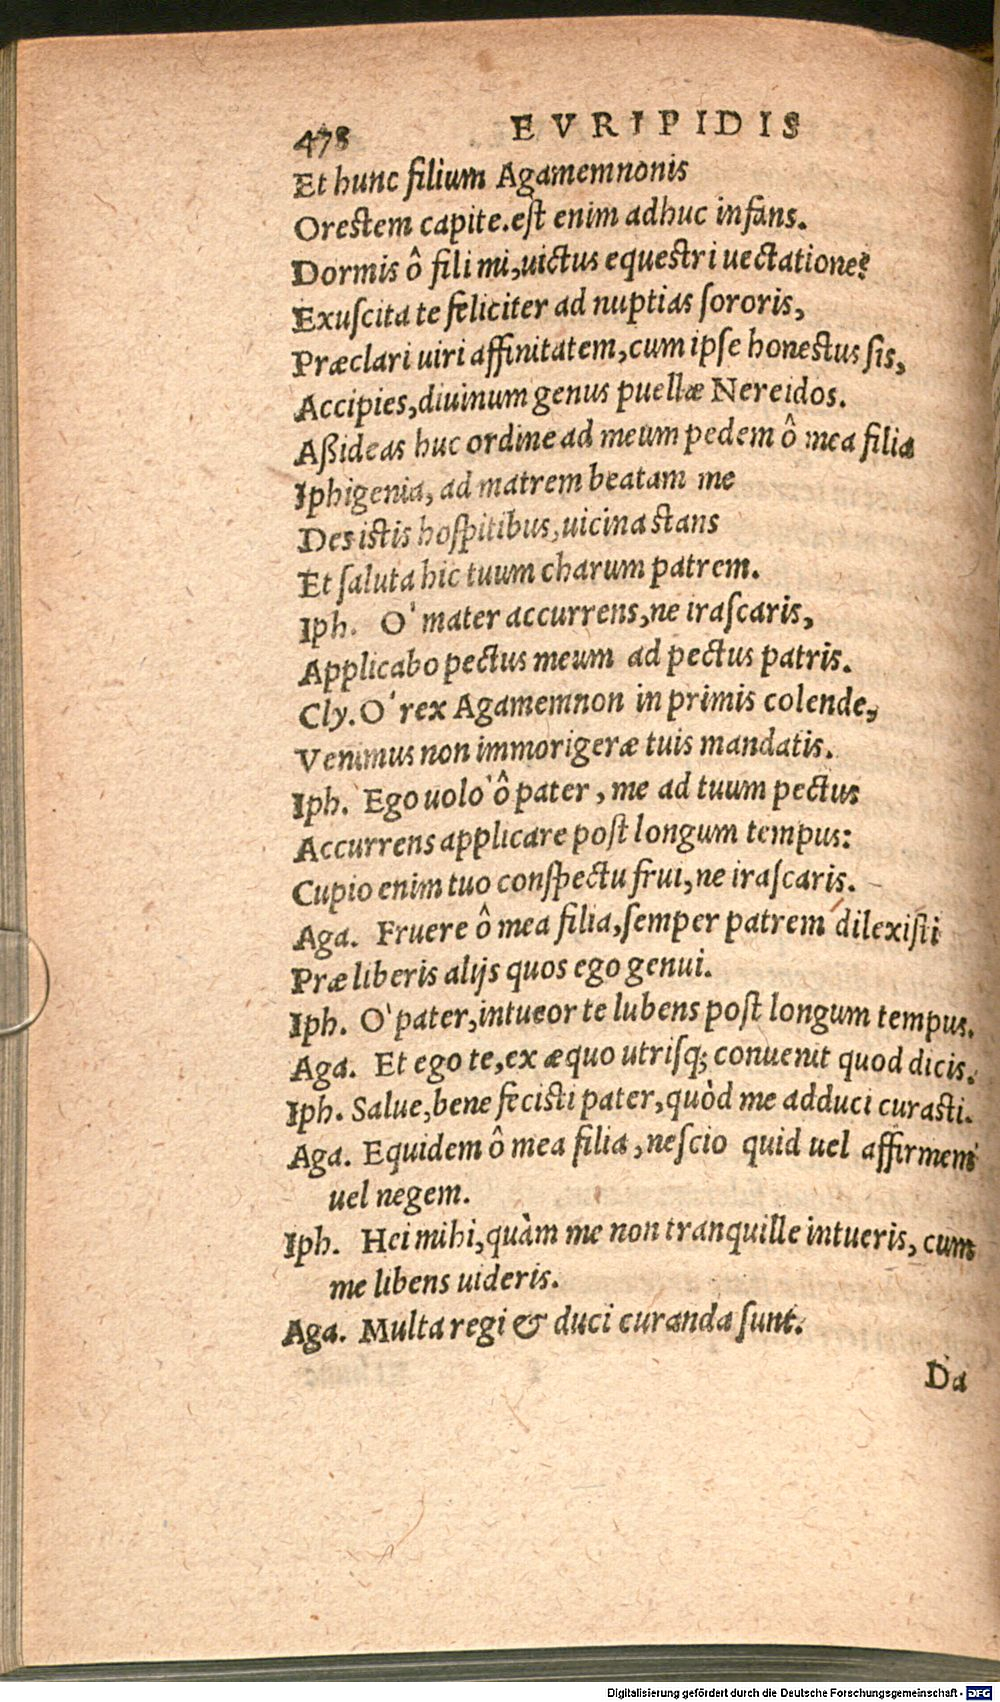 478 EVRIPIDIS
Et hunc filium Agamemnonis
Orestem capite. est enim adhuc infans.
Dormis ô fili mi, uictus equestri uectatione?
Exuſcita te feliciter ad nuptias ſororis,
Præclari uiri affinitatem, cum ipſe honestus ſis,
Accipies, diuinum genus puellæ Nereidos.
Aßideas huc ordine ad meum pedem ô mea filia
Iphigenia, ad matrem beatam me
Des istis hoſpitibus, uicina stans
Et ſaluta hic tuum charum patrem.
Iph. O' mater accurrens, ne iraſcaris,
Applicabo pectus meum ad pectus patris.
Cly. O' rex Agamemnon in primis colende,
Venimus non immorigeræ tuis mandatis.
Iph. Ego uolo ô pater, me ad tuum pectus
Accurrens applicare poſt longum tempus:
Cupio enim tuo conſpectu frui, ne iraſcaris.
Aga. Fruere ô mea filia, ſemper patrem dilexiſti
Præ liberis alijs quos ego genui.
Iph. O' pater, intueor te lubens poſt longum tempus.
Aga. Et ego te, ex æquo utriſq; conuenit quod dicis.
Iph. Salue, bene fecisti pater, quòd me adduci curasti.
Aga. Equidem ô mea filia, neſcio quid uel affirmem
uel negem.
Iph. Hei mihi, quàm me non tranquille intueris, cum
me libens uideris.
Aga. Multa regi & duci curanda ſunt.
Da
Digitalisierung gefördert durch die Deutsche Forschungsgemeinschaft - DFG